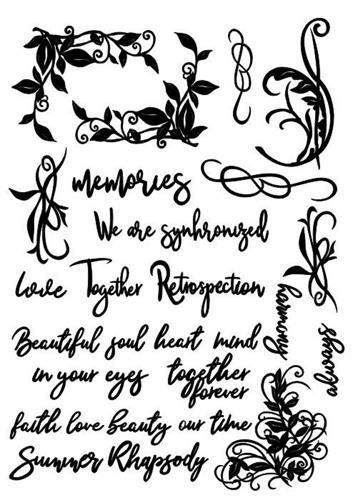 memories
We are synhronized
love Together Retrospection
harmony
always
Beautiful soul heart mind
in your eyes together forever
faith love beauty our time
Summer Rhapsody